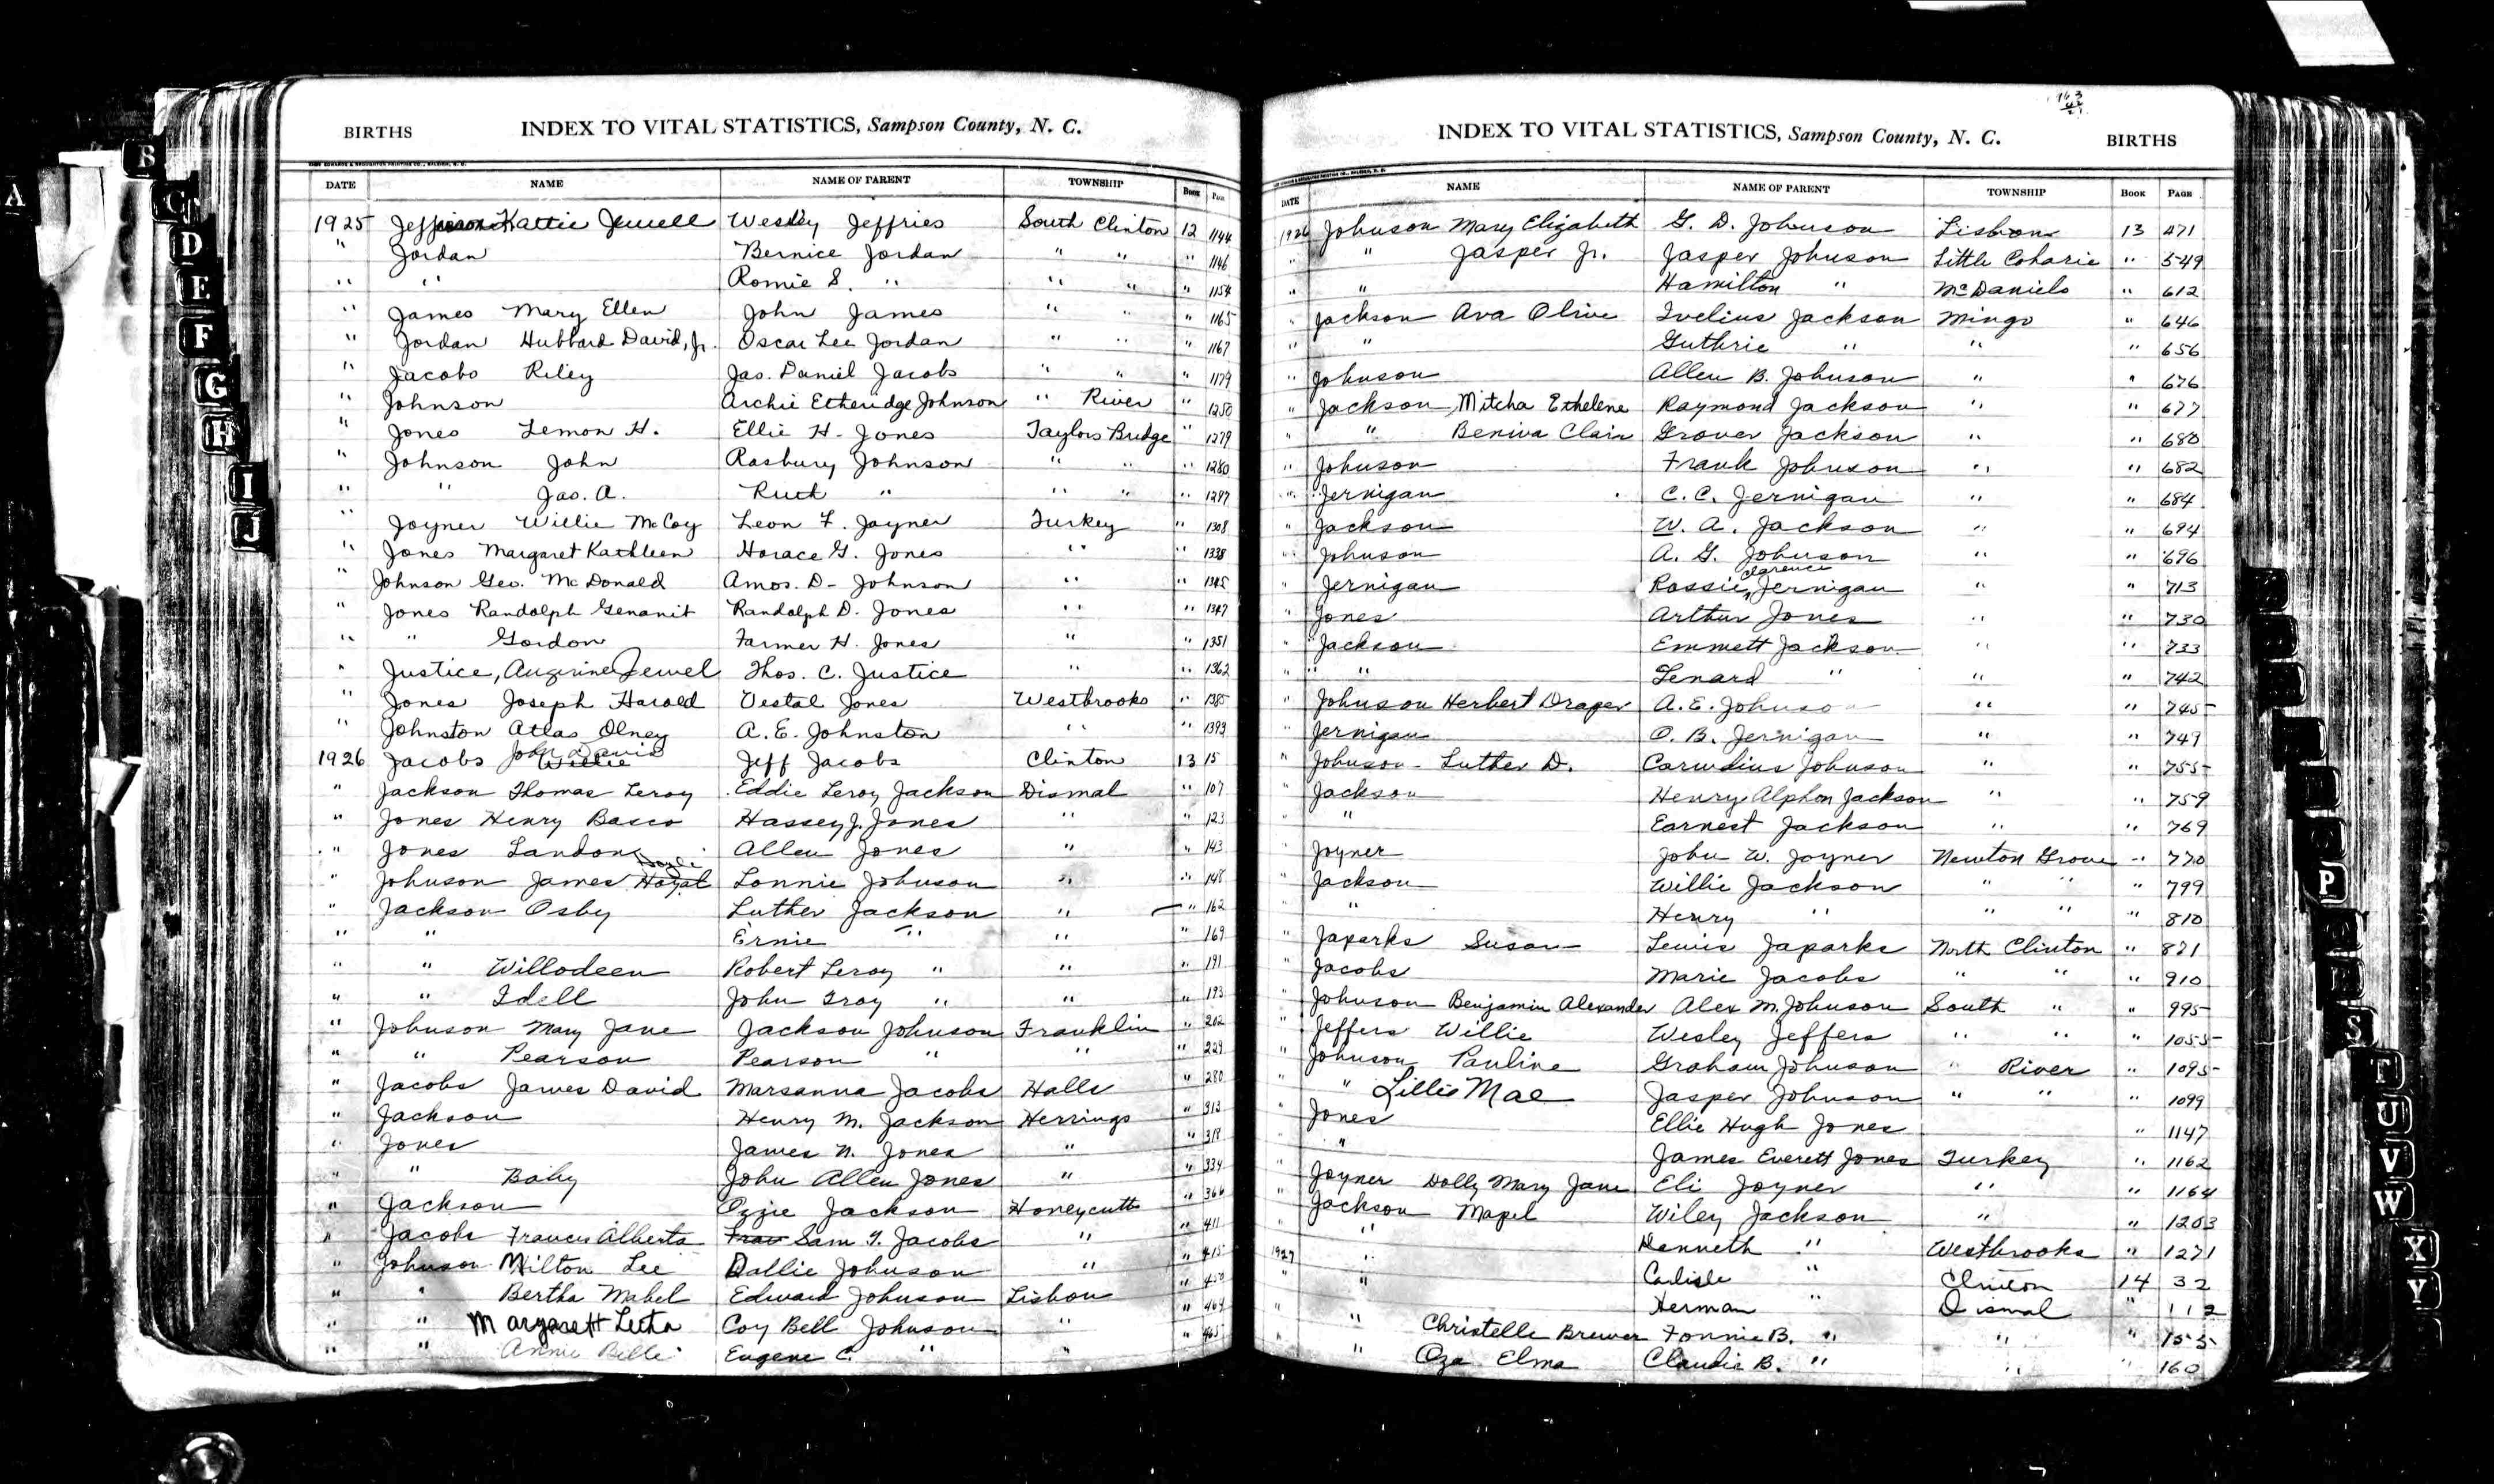 BIRTHS INDEX TO VITAL STATISTICS, Sampson County, N. C.
DATE NAME NAME OF PARENT TOWNSHIP BOOK PAGE
1925 Hattie Jewell Wesley Jeffries South Clinton 12 1144
" Jordan Bernice Jordan " " " 1146
" " Romie S. " " " " 1154
" James Mary Ellen John James " " " 1165
" Jordan Hubbard David, Jr. Oscar Lee Jordan " " " 1167
" Jacobs Riley Jas. Daniel Jacobs " " " 1179
" Johnson Archie Etheridge Johnson " River " 1250
" Jones Lemon H. Ellie H. Jones Taylors Bridge " 1279
" Johnson John Rasbury Johnson " " " 1280
" " Jas. A. Ruth " " " " 1297
" Joyner Willie McCoy Leon F. Joyner Turkey " 1308
" Jones Margaret Kathleen Horace G. Jones " " 1338
" Johnson Geo. McDonald Amos. D. Johnson " " 1345
" Jones Randolph Genanit Randolph D. Jones " " 1347
" " Gordon Farmer H. Jones " " 1351
" Justice, Augerine Jewel Thos. C. Justice " " 1362
" Jones Joseph Harold Vestal Jones Westbrooks " 1385
" Johnston Atlas Olney A. E. Johnston " " 1393
1926 Jacobs John Davis Willie Jeff Jacobs Clinton 13 15
" Jackson Thomas Leroy Eddie Leroy Jackson Dismal " 107
" Jones Henry Basco Hassey J. Jones " " 123
" Jones Landon Allen Jones " " 143
" Johnson James Lonnie Johnson " " 148
" Jackson Osby Luther Jackson " " 162
" " Ernie " " " 169
" " Willodeen Robert Leroy " " " 191
" " Idell John Troy " " " 193
" Johnson Mary Jane Jackson Johnson Franklin " 202
" " Pearson Pearson " " " 229
" Jacobs James David Marsanna Jacobs Halls " 280
" Jackson Henry M. Jackson Herrings " 313
" Jones James N. Jones " " 318
" " Baby John Allen Jones " " 334
" Jackson Ozzie Jackson Honeycutts " 366
" Jacobs Francis Alberta Sam T. Jacobs " " 411
" Johnson Milton Lee Dallie Johnson " " 415
" " Bertha Mabel Edward Johnson Lisbon " 450
" " Margarett Leeta Coy Bell Johnson " " 464
" " Annie Belle Eugene C. " " " 465
963
42
21
INDEX TO VITAL STATISTICS, Sampson County, N. C. BIRTHS
DATE NAME NAME OF PARENT TOWNSHIP BOOK PAGE
1926 Johnson Mary Elizabeth G. D. Johnson Lisbon 13 471
" " Jasper Jr. Jasper Johnson Little Coharie " 549
" " Hamilton " McDaniels " 612
" Jackson Ava Olive Ivelius Jackson Mingo " 646
" " Guthrie " " " 656
" Johnson Allen B. Johnson " " 676
" Jackson Mitcha Ethelene Raymond Jackson " " 677
" " Beniva Clair Grover Jackson " " 680
" Johnson Frank Johnson " " 682
" Jernigan C. C. Jernigan " " 684
" Jackson W. A. Jackson " " 694
" Johnson A. G. Johnson " " 696
" Jernigan Rossie Clarence Jernigan " " 713
" Jones Arthur Jones " " 730
" Jackson Emmett Jackson " " 733
" " Lenard " " " 742
" Johnson Herbert Draper A. E. Johnson " " 745
" Jernigan O. B. Jernigan " " 749
" Johnson Luther D. Carudius Johnson " " 755
" Jackson Henry Alphon Jackson " " 759
" " Earnest Jackson " " 769
" Joyner John W. Joyner Newton Grove " 770
" Jackson Willie Jackson " " " 799
" " Henry " " " " 810
" Japarks Susan Lewis Japarks North Clinton " 871
" Jacobs Marie Jacobs " " " 910
" Johnson Benjamin Alexander Alex M. Johnson South " " 995
" Jeffers Willie Wesley Jeffers " " " 1055
" Johnson Pauline Graham Johnson " River " 1095
" " Lillie Mae Jasper Johnson " " " 1099
" Jones Ellie Hugh Jones " 1147
" " James Everett Jones Turkey " 1162
" Joyner Dolly Mary Jane Eli Joyner " " 1164
" Jackson Mapel Wiley Jackson " " 1203
" " Kenneth " Westbrooks " 1271
1927 " Carlisle " Clinton 14 32
" " Herman " Dismal " 112
" " Christelle Brewer Fonnie B. " " " 155
" Oza Elma Claudie B. " " " 160
A
B
C
D
E
F
G
H
I
J
P
S
T
U
V
W
X
Y